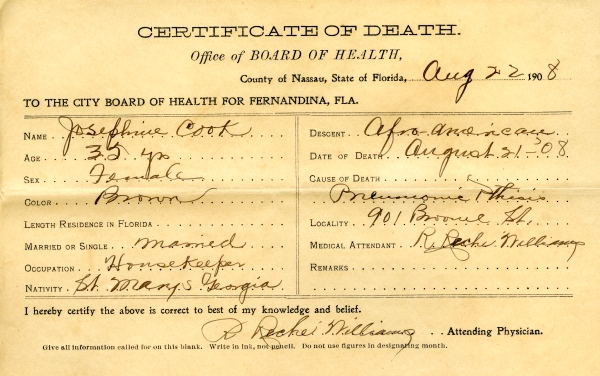 CERTIFICATE OF DEATH.
Office of BOARD OF HEALTH,
County of Nassau, State of Florida, Aug 22 1908
TO THE CITY BOARD OF HEALTH FOR FERNANDINA, FLA.
NAME Josephine Cook
AGE 35 yrs
SEX Female
COLOR Brown
LENGTH RESIDENCE IN FLORIDA
MARRIED OR SINGLE Married
OCCUPATION Housekeeper
NATIVITY St. Marys Georgia
DESCENT Afro American
DATE OF DEATH August 21st 08
CAUSE OF DEATH
Pneumonic Pthisis
LOCALITY 901 Broome St.
MEDICAL ATTENDANT R. Williams
REMARKS
I hereby certify the above is correct to best of my knowledge and belief.
R Williams Attending Physician.
Give all information called for on this blank. Write in ink, not pencil. Do not use figures in designating month.